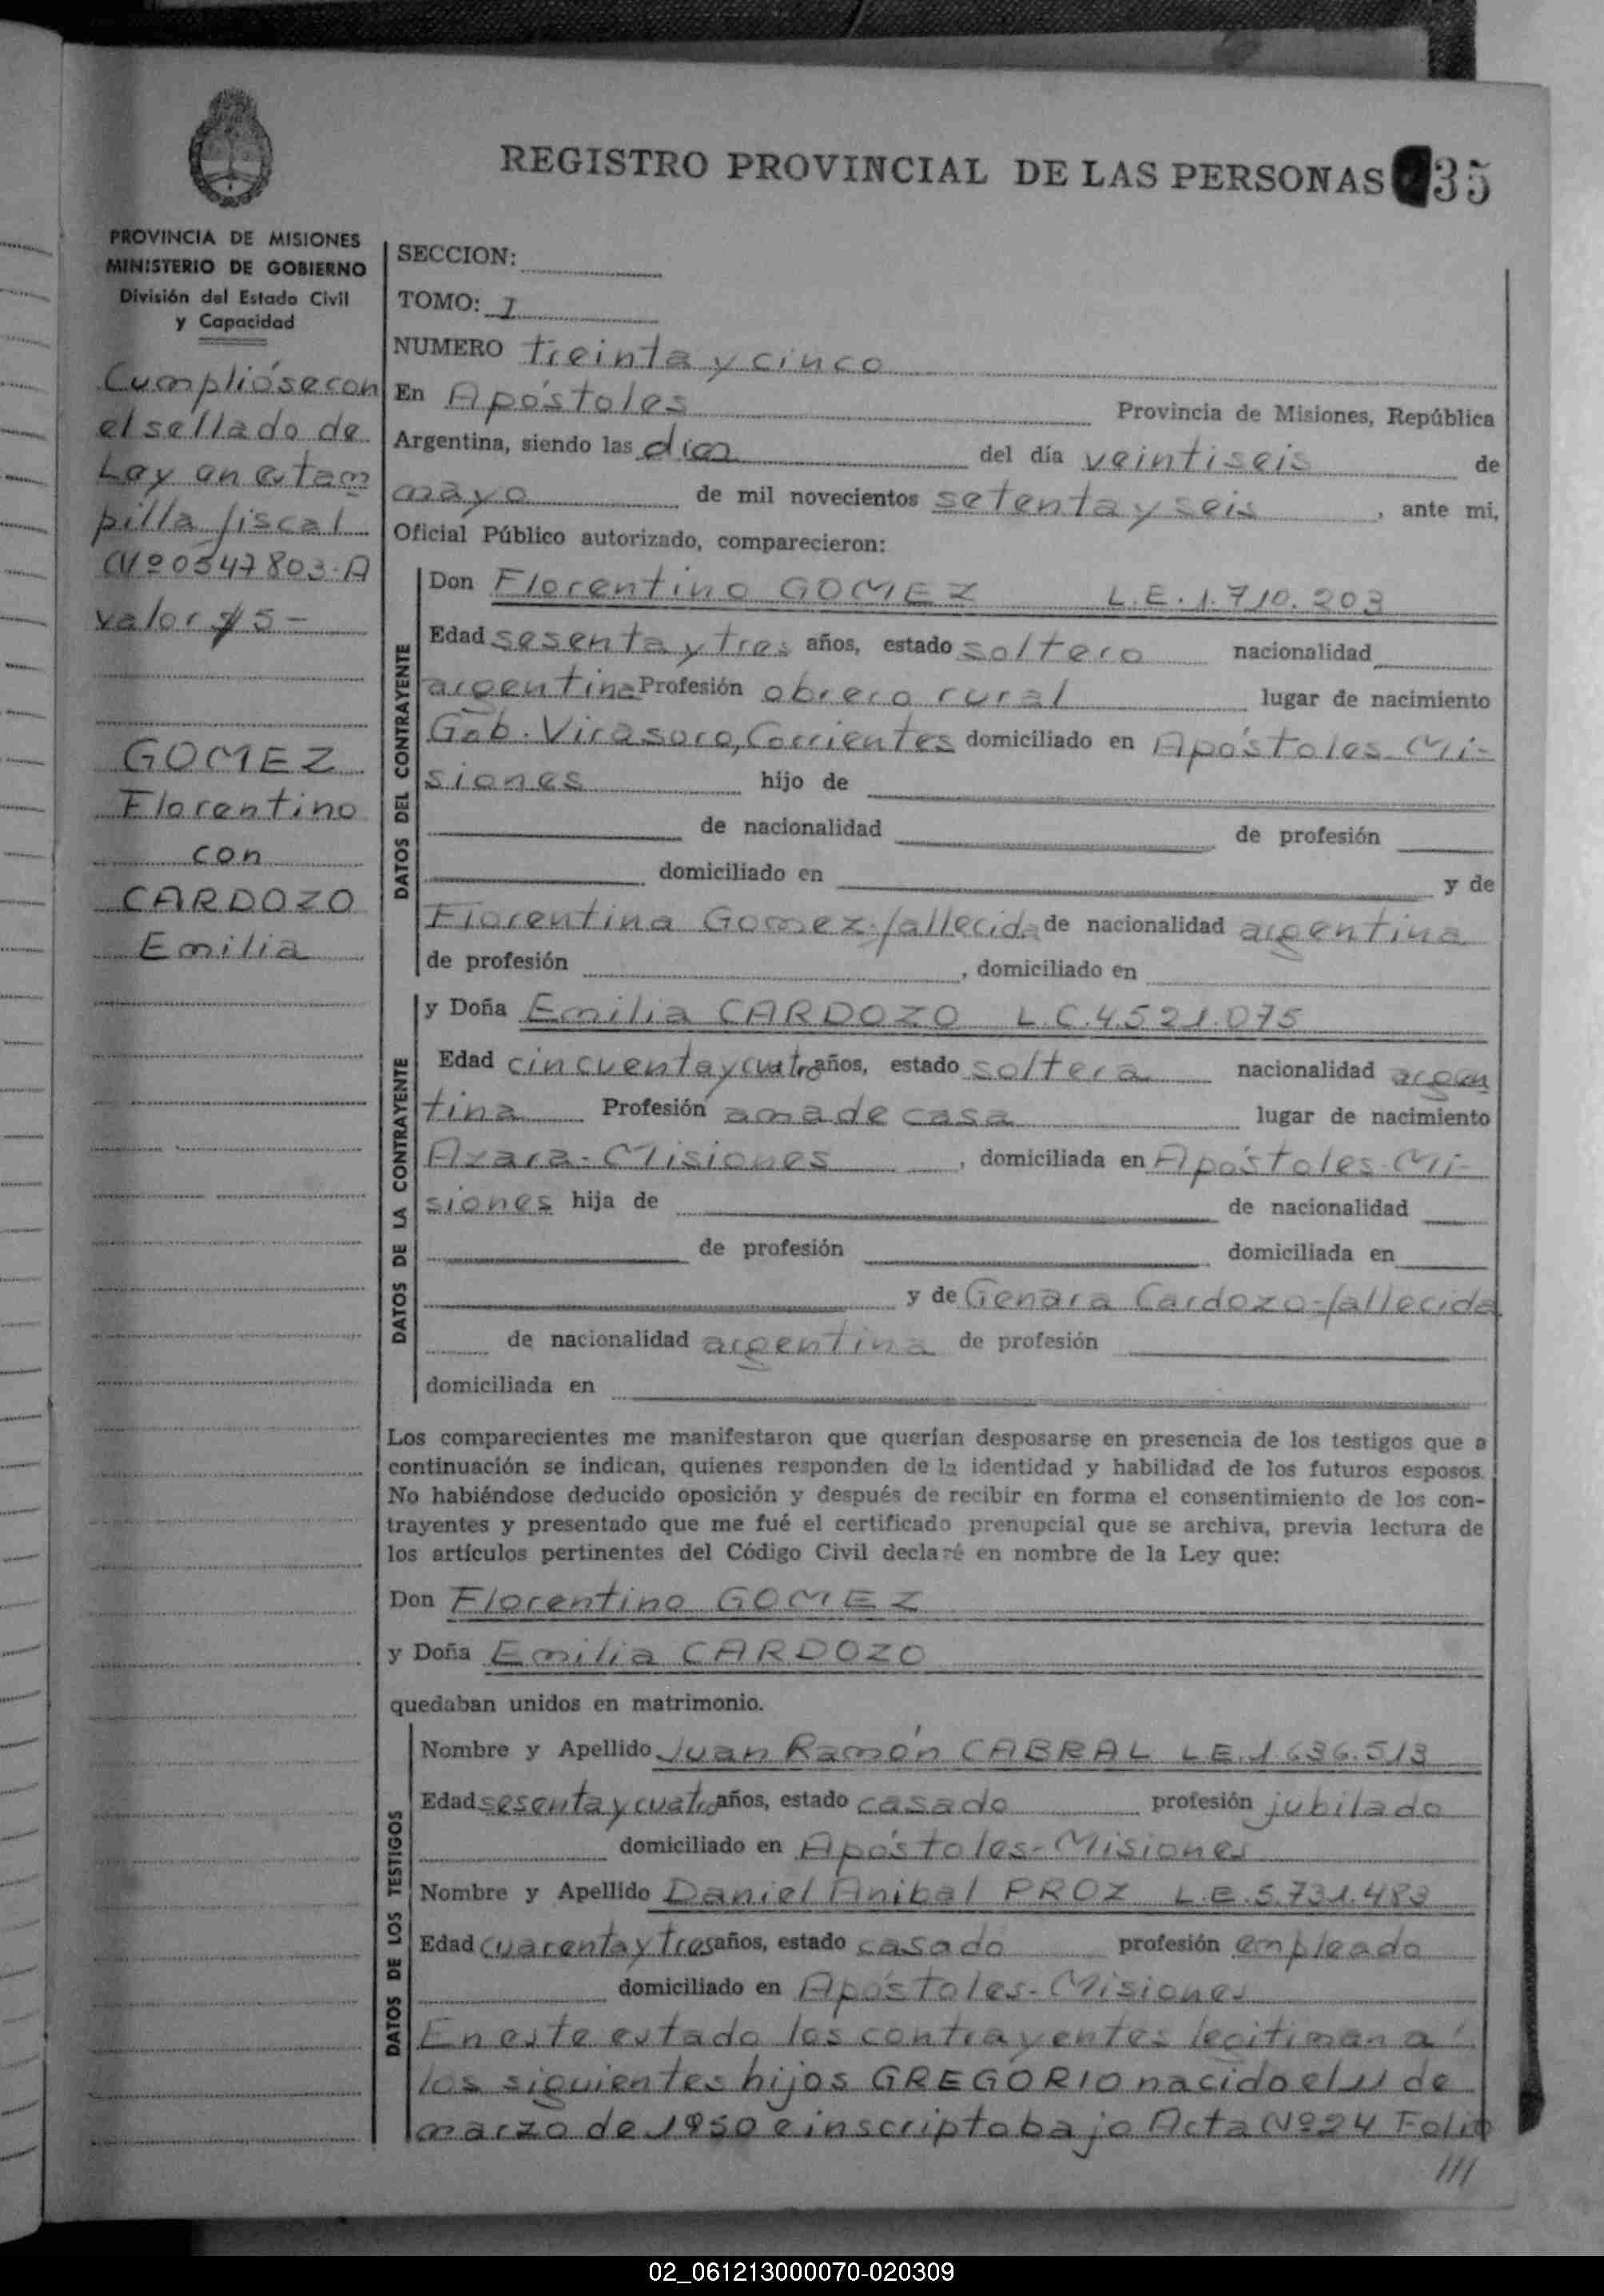 REGISTRO PROVINCIAL DE LAS PERSONAS 35
PROVINCIA DE MISIONES
MINISTERIO DE GOBIERNO
División del Estado Civil
y Capacidad
Cumplióse con
el sellado de
Ley en estam
pilla fiscal
Nº 0547803-A
valor $5-
GOMEZ
Florentino
con
CARDOZO
Emilia
SECCION:
TOMO: I
NUMERO treinta y cinco
En Apóstoles Provincia de Misiones, República
Argentina, siendo las diez del día veintiseis de
mayo de mil novecientos setenta y seis, ante mi,
Oficial Público autorizado, comparecieron:
DATOS DEL CONTRAYENTE
Don Florentino GOMEZ L.E.1.710.203
Edad sesenta y tres años, estado soltero nacionalidad
argentina Profesión obrero rural lugar de nacimiento
Gob. Virasoro, Corrientes domiciliado en Apóstoles Mi-
siones hijo de
de nacionalidad de profesión
domiciliado en y de
Florentina Gomez-fallecida de nacionalidad argentina
de profesión , domiciliado en
DATOS DE LA CONTRAYENTE
y Doña Emilia CARDOZO L.C.4.521.075
Edad cincuenta y cuatro años, estado soltera nacionalidad argen
tina Profesión ama de casa lugar de nacimiento
Azara-Misiones , domiciliada en Apóstoles-Mi-
siones hija de de nacionalidad
de profesión domiciliada en
y de Genara Cardozo-fallecida
de nacionalidad argentina de profesión
domiciliada en
Los comparecientes me manifestaron que querían desposarse en presencia de los testigos que a
continuación se indican, quienes responden de la identidad y habilidad de los futuros esposos.
No habiéndose deducido oposición y después de recibir en forma el consentimiento de los con-
trayentes y presentado que me fué el certificado prenupcial que se archiva, previa lectura de
los artículos pertinentes del Código Civil declaré en nombre de la Ley que:
Don Florentino GOMEZ
y Doña Emilia CARDOZO
quedaban unidos en matrimonio.
DATOS DE LOS TESTIGOS
Nombre y Apellido Juan Ramón CABRAL L.E.1.636.513
Edad sesenta y cuatro años, estado casado profesión jubilado
domiciliado en Apóstoles-Misiones
Nombre y Apellido Daniel Anibal PROZ L.E.5.731.483
Edad cuarenta y tres años, estado casado profesión empleado
domiciliado en Apóstoles-Misiones
En este estado los contrayentes legitiman a
los siguientes hijos GREGORIO nacido el 11 de
marzo de 1950 e inscripto bajo Acta Nº 24 Folio
///
02_061213000070-020309